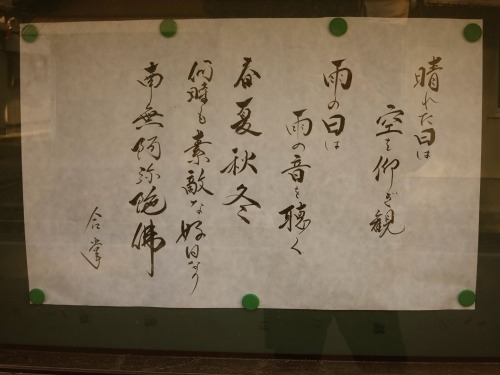 晴れた日は
空を仰ぎ観
雨の日は
雨の音を聴く
春夏秋冬
何時も素敵な好日なり
南無阿弥陀佛
合掌